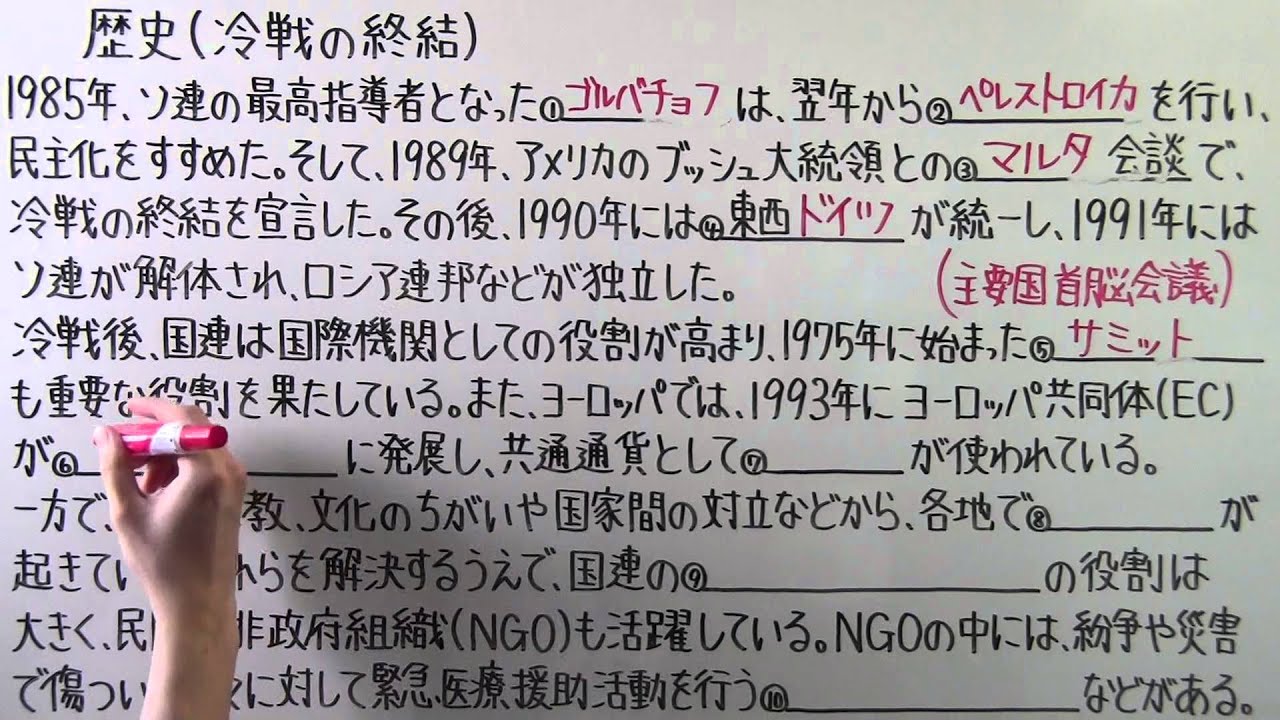 歴史(冷戦の終結)
1985年、ソ連の最高指導者となった①ゴルバチョフは、翌年から②ペレストロイカを行い、
民主化をすすめた。そして、1989年、アメリカのブッシュ大統領との③マルタ会談で、
冷戦の終結を宣言した。その後、1990年には④東西ドイツが統一し、1991年には
ソ連が解体され、ロシア連邦などが独立した。
(主要国首脳会議)
冷戦後、国連は国際機関としての役割が高まり、1975年に始まった⑤サミット
も重要な役割を果たしている。また、ヨーロッパでは、1993年にヨーロッパ共同体(EC)
が⑥ に発展し、共通通貨として⑦ が使われている。
一方で、 教、文化のちがいや国家間の対立などから、各地で⑧ が
起きてい らを解決するうえで、国連の⑨ の役割は
大きく、民 非政府組織(NGO)も活躍している。NGOの中には、紛争や災害
で傷つい に対して緊急医療援助活動を行う⑩ などがある。